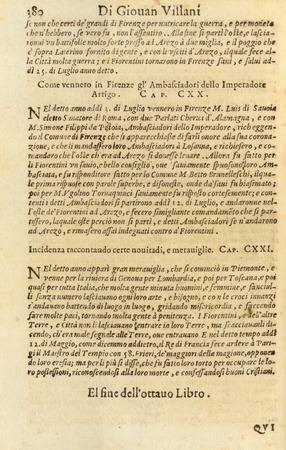 380 Di Giouan Villani
se non che certi de' grandi di Firenze per nutricare la guerra, e per moneta
che n'hebbero, se vero fu, non l'assentiro. Alla fine si partì l'oste, e lascia-
ronui battifolle molto forte presso ad Arezo à due miglia, e il poggio che
è sopra Laterino fornito di gente, e con li usciti d'Arezo, il quale fece al-
la Città molta guerra; e i Fiorentini tornarono in Firenze sani, e salui ad-
dì 25. di Luglio anno detto.
Come vennero in Firenze gl' Ambasciadori dello Imperadore
Arrigo. CAP. CXX.
NEL detto anno addì 3. di Luglio vennero in Firenze M. Luis di Sauoia
eletto Sanatore di Roma, con due Parlati Cherici d'Alamagna, e con
M. Simone Filippi da Pistoia, Ambasciadori dello Imperadore, richeggen-
do il Comune di Firenze che s'apparecchiasse di farli onore alla sua corona-
zione, e che li mandassero loro Ambasciadori à Losanna, e richiesero, e co-
mandaro che l'oste ch'era ad Arezo si douesse leuare. Allora fu fatto per
li Fiorentini vn grande, e bello consiglio, oue sauiamente spuosono loro Am-
basciata, e fu risponditore fatto per lo Comune M. Betto Brunelleschi, il qua-
le prima rispose con parole superbe, e disoneste, onde da' saui fu biasimato;
poi per M. Vgolino Tornaquinci sauiamente fu risposto, e cortesemente con-
tenti i detti Ambasciadori si partirono addì 12. di Luglio, e andaronne nel-
l'oste de' Fiorentini ad Arezo, e fecero simigliante comandamento che si par-
tissero, la quale oste perciò non si partì, e detti Ambasciadori se n'andarono
ad Arezo, e rimasero assai indegnati contro à Fiorentini.
Incidenza raccontando certe nouitadi, e merauiglie. CAP. CXXI.
NEL detto anno apparì gran merauiglia, che si cominciò in Piemonte, e
venne per la riuiera di Genoua per Lombardia, e poi per Toscana, e poi
quasi per tutta Italia, che molta gente minuta huomini, e femmine, e fanciul-
li sanza numero lasciauano ogni loro arte, e bisogno, e con le croci innanzi
s'andauano battendo di luogo in luogo, gridando misericordia, e facendo
fare molte paci, tornando molta gente à penitenza. I Fiorentini, e dell'altre
Terre, e Città non li lasciauano entrare in loro Terre, ma scacciauanli di-
cendo, ch'era male segnale alle Terre, oue entrauano. E nel detto tempo addì
12. di Maggio, come dicemmo addietro, al Re di Francia fece ardere à Pari-
gi il Maestro del Tempio con 58. Frieri, de' maggiori della magione, opponendo
loro eresia; ma per li più si disse, che fu fatto loro torto per occupare le lo-
ro posessioni, riconoscendosi alla loro morte, e confessandosi buoni Cristiani.
El fine dell'ottauo Libro.
QVI